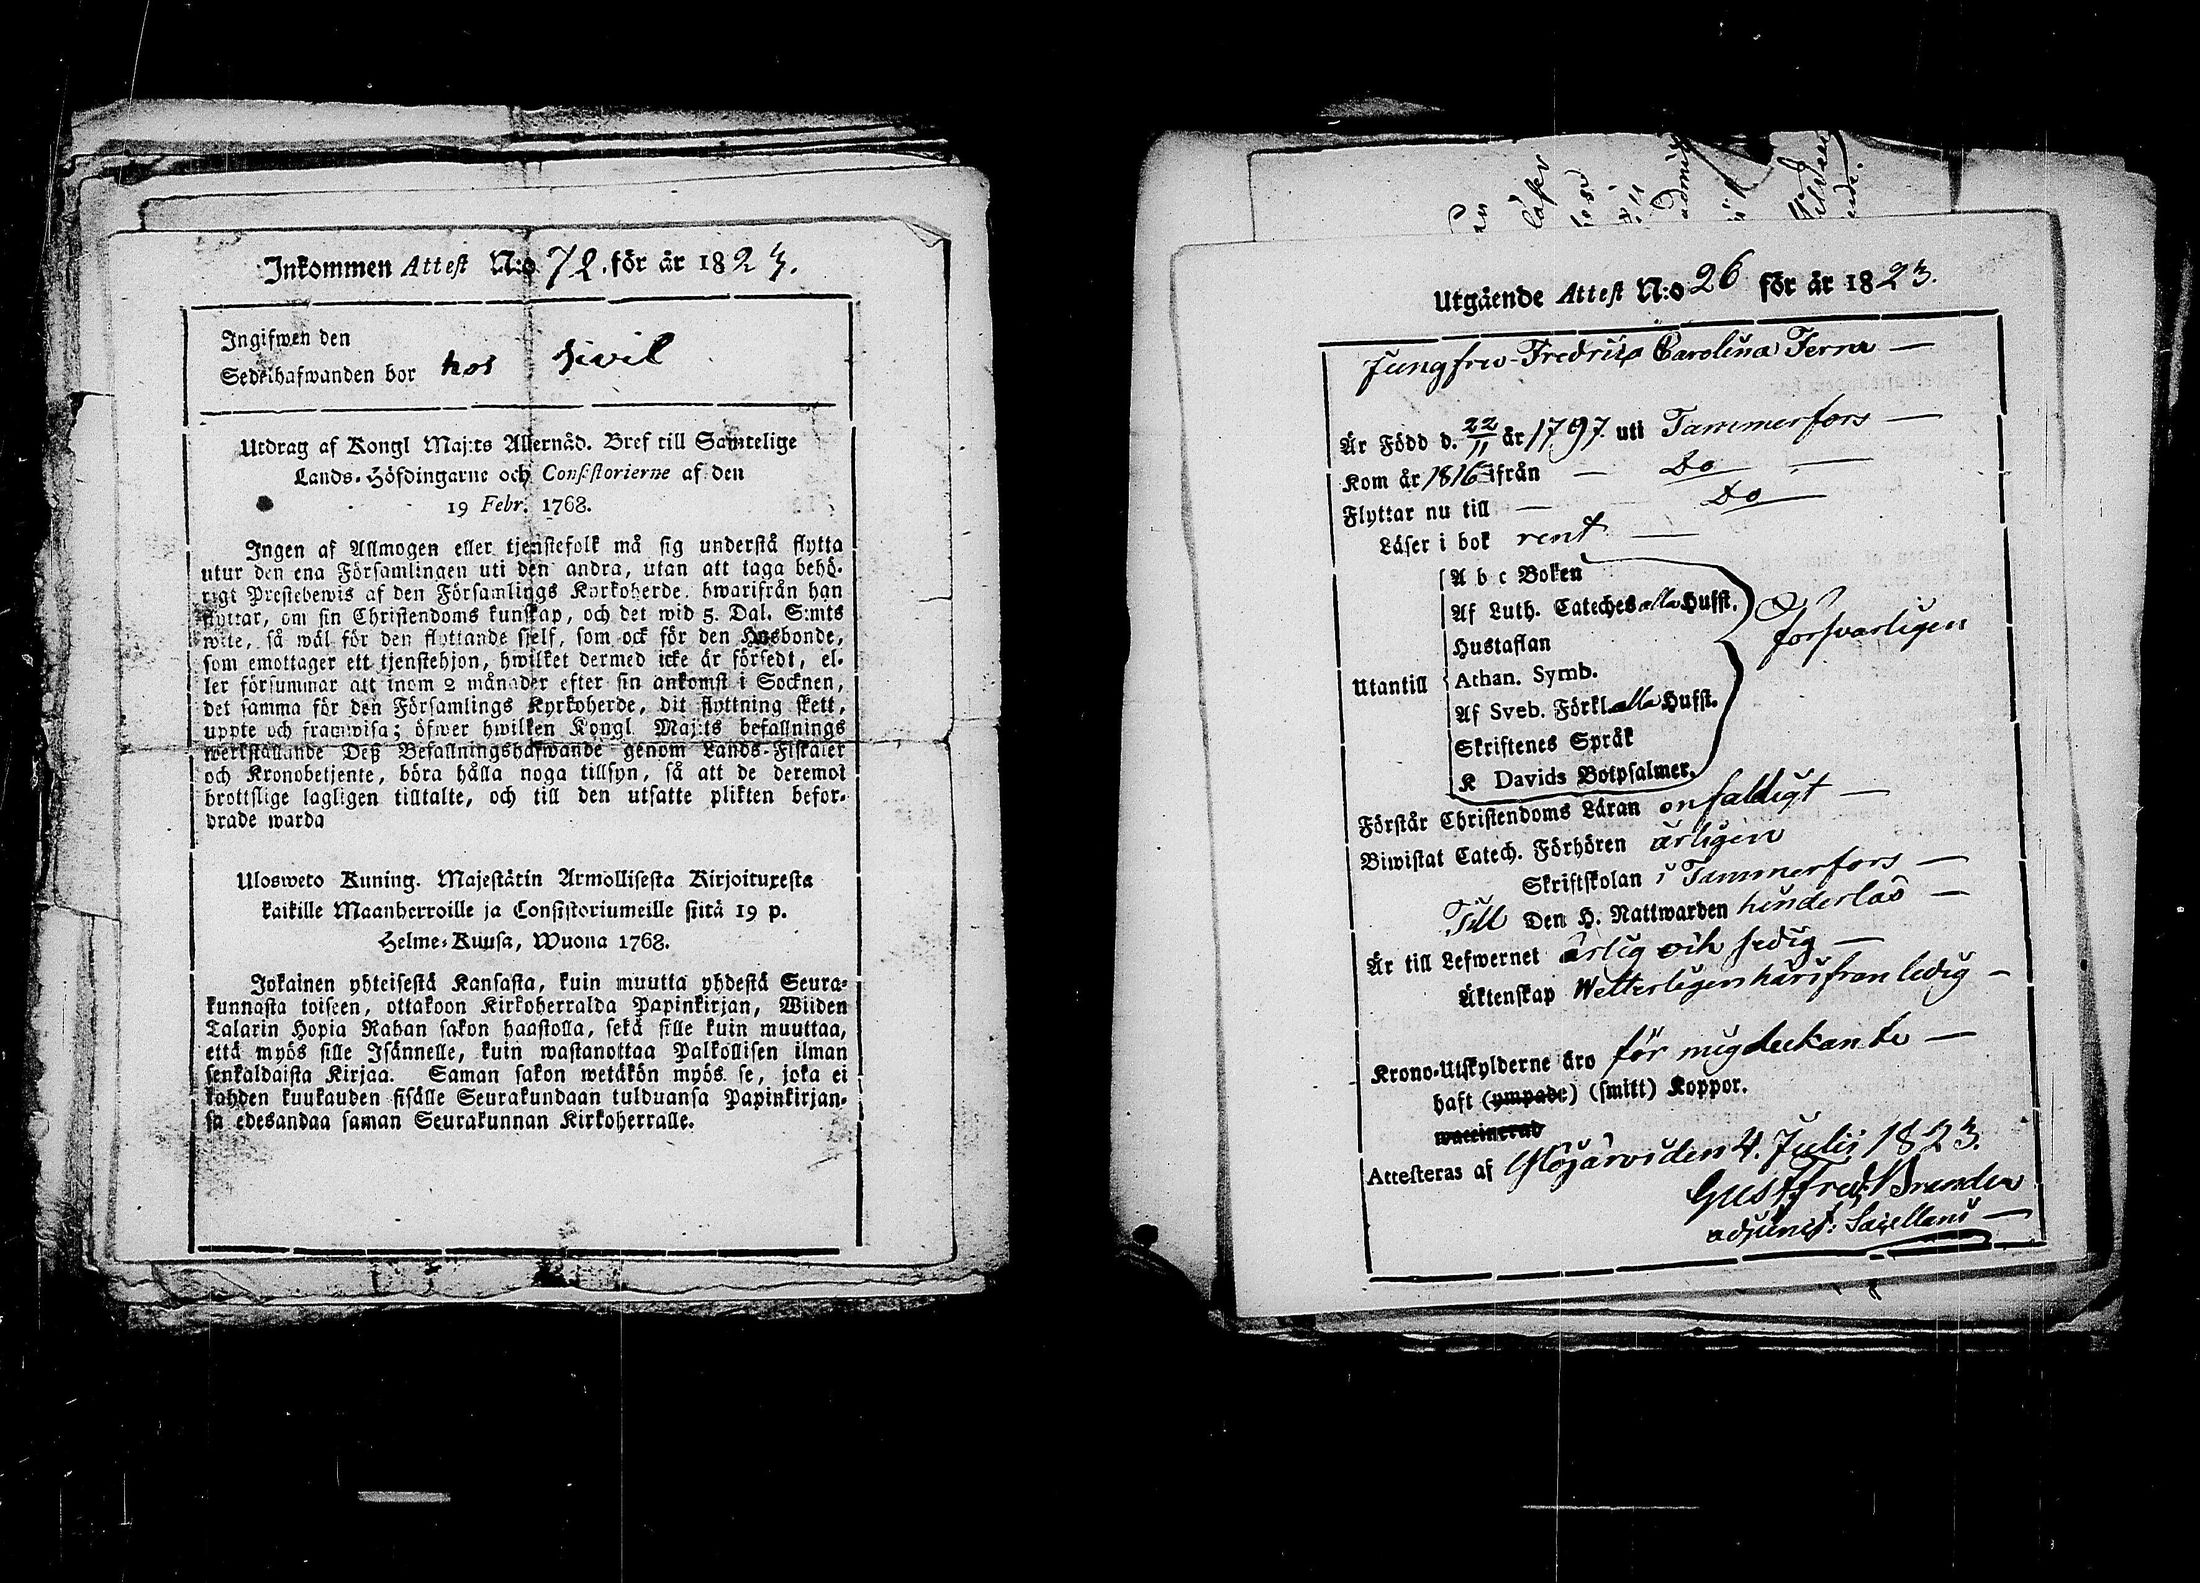 Inkommen Attest N:o 72. för år 1823.
Ingifwen den
Sedelhafwanden bor hos Sivil
Utdrag af Kongl Maj:ts Allernåd. Bref till Samtelige
Lands-Höfdingarne och Consistorierne af den
19 Febr. 1768.
Ingen af Allmogen eller tjenstefolk må sig understå flytta
utur den ena Församlingen uti den andra, utan att taga behö-
rigt Prestebewis af den Församlings Kyrkoherde, hwarifrån han
flyttar, om sin Christendoms kunskap, och det wid 5. Dal. S:mts
wite, så wäl för den flyttande sjelf, som ock för den Husbonde,
som emottager ett tjenstehjon, hwilket dermed icke är försedt, el-
ler försummar att inom 2 månader efter sin ankomst i Socknen,
det samma för den Församlings Kyrkoherde, dit flyttning skett,
uppte och framwisa; öfwer hwilken Kongl Maj:ts befallnings
werkställande Deß Befallningshafwande genom Lands-Fiskaler
och Kronobetjente, böra hålla noga tillsyn, så att de deremot
brottslige lagligen tilltalte, och till den utsatte plikten befor-
drade warda
Ulosweto Kuning. Majestätin Armollisesta Kirjoituxesta
kaikille Maanherroille ja Consistoriumeille siitä 19 p.
Helme-Kuusa, Wuona 1768.
Jokainen yhteisestä Kansasta, kuin muutta yhdestä Seura-
kunnasta toiseen, ottakoon Kirkoherralda Papinkirjan, Wiiden
Talarin Hopia Rahan sakon haastolla, sekä sille kuin muuttaa,
että myös sille Isännelle, kuin wastanottaa Palkollisen ilman
senkaldaista Kirjaa. Saman sakon wetäkön myös se, joka ei
kahden kuukauden sisälle Seurakundaan tulduansa Papinkirjan-
sa edesandaa saman Seurakunnan Kirkoherralle.
Utgående Attest N:o 26 för år 1823.
Jungfru Fredrica Carolina Ferra
Är Född d. 22/11 år 1797. uti Tammerfors
Kom år 1816 ifrån Do
Flyttar nu till Do
Läser i bok rent
A b c Boken
Af Luth. Cateches alla Hufst.
Hustaflan
försvarligen
Utantill Athan. Symb.
Af Sveb. Förkl alla Hufst.
Skriftenes Språk
K Davids Botpsalmer.
Förstår Christendoms Läran enfaldigt
Biwistat Catech. Förhören årligen
Skriftskolan i Tammerfors
Till Den H. Nattwarden hinderlös
Är till Lefwernet ärlig och sedig
Äktenskap Wetterligen härifrån ledig
Krono-Utskylderne äro för mig obekante
haft (ympade) (smitt) Koppor.
waccinerad
Attesteras af Ylöjärvi den 4. Julii 1823.
Gust Fred:
adjunct: Sacellans